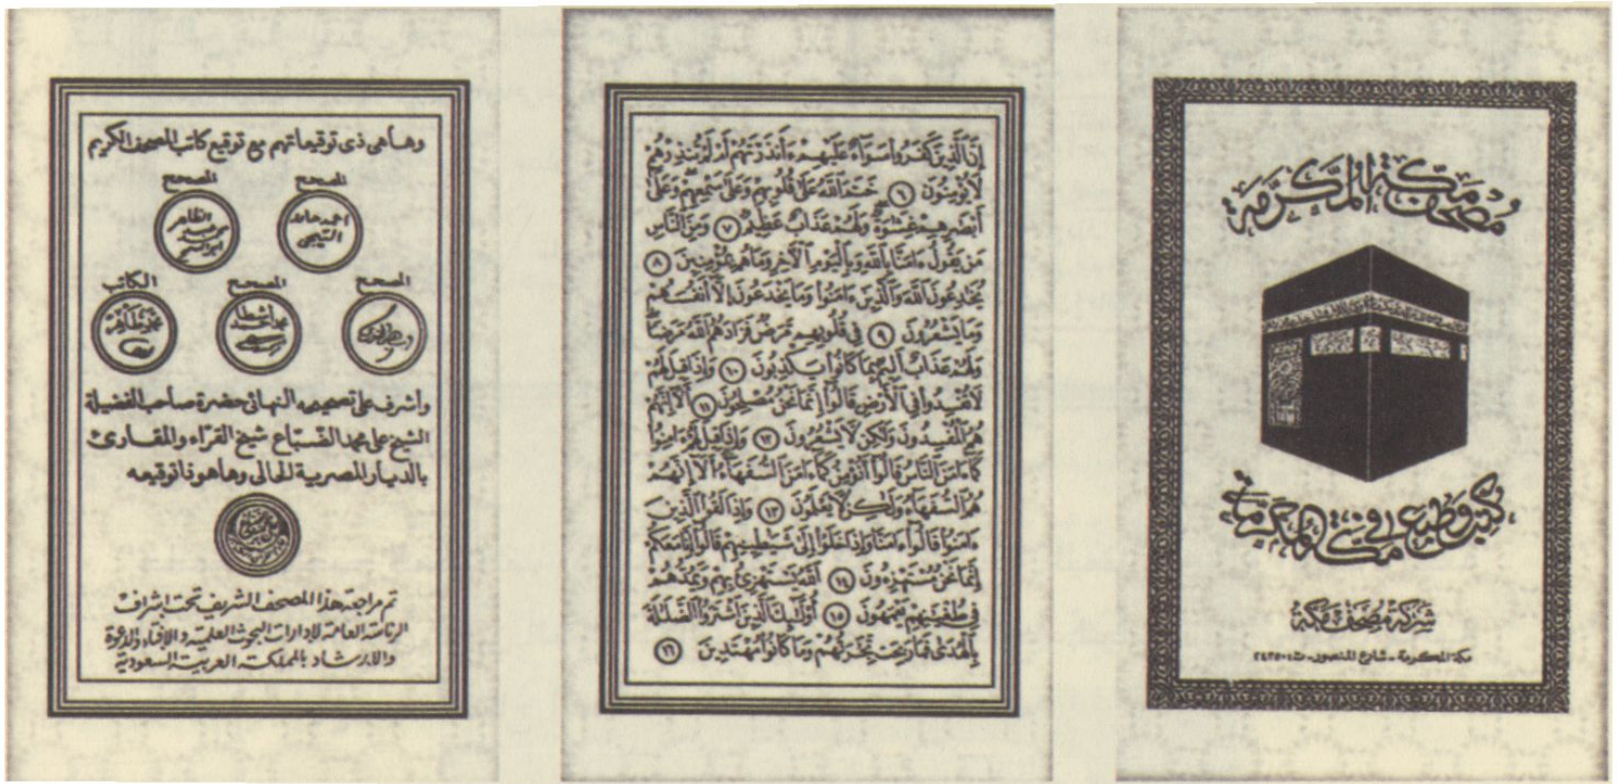 مُصْحَفُ مَكَّةَ الْمُكَرَّمَة
كتب وطبع في مكة المكرمة
شركة مصحف مكة
مكة المكرمة - شارع المنصور - ت
إِنَّ ٱلَّذِينَ كَفَرُوا۟ سَوَآءٌ عَلَيْهِمْ ءَأَنذَرْتَهُمْ أَمْ لَمْ تُنذِرْهُمْ
لَا يُؤْمِنُونَ ٦ خَتَمَ ٱللَّهُ عَلَىٰ قُلُوبِهِمْ وَعَلَىٰ سَمْعِهِمْ وَعَلَىٰٓ
أَبْصَٰرِهِمْ غِشَٰوَةٌ وَلَهُمْ عَذَابٌ عَظِيمٌ ٧ وَمِنَ ٱلنَّاسِ
مَن يَقُولُ ءَامَنَّا بِٱللَّهِ وَبِٱلْيَوْمِ ٱلْءَاخِرِ وَمَا هُم بِمُؤْمِنِينَ ٨
يُخَٰدِعُونَ ٱللَّهَ وَٱلَّذِينَ ءَامَنُوا۟ وَمَا يَخْدَعُونَ إِلَّآ أَنفُسَهُمْ
وَمَا يَشْعُرُونَ ٩ فِى قُلُوبِهِم مَّرَضٌ فَزَادَهُمُ ٱللَّهُ مَرَضًا
وَلَهُمْ عَذَابٌ أَلِيمٌۢ بِمَا كَانُوا۟ يَكْذِبُونَ ١٠ وَإِذَا قِيلَ لَهُمْ
لَا تُفْسِدُوا۟ فِى ٱلْأَرْضِ قَالُوٓا۟ إِنَّمَا نَحْنُ مُصْلِحُونَ ١١ أَلَآ إِنَّهُمْ
هُمُ ٱلْمُفْسِدُونَ وَلَٰكِن لَّا يَشْعُرُونَ ١٢ وَإِذَا قِيلَ لَهُمْ ءَامِنُوا۟
كَمَآ ءَامَنَ ٱلنَّاسُ قَالُوٓا۟ أَنُؤْمِنُ كَمَآ ءَامَنَ ٱلسُّفَهَآءُ أَلَآ إِنَّهُمْ
هُمُ ٱلسُّفَهَآءُ وَلَٰكِن لَّا يَعْلَمُونَ ١٣ وَإِذَا لَقُوا۟ ٱلَّذِينَ
ءَامَنُوا۟ قَالُوٓا۟ ءَامَنَّا وَإِذَا خَلَوْا۟ إِلَىٰ شَيَٰطِينِهِمْ قَالُوٓا۟ إِنَّا مَعَكُمْ
إِنَّمَا نَحْنُ مُسْتَهْزِءُونَ ١٤ ٱللَّهُ يَسْتَهْزِئُ بِهِمْ وَيَمُدُّهُمْ
فِى طُغْيَٰنِهِمْ يَعْمَهُونَ ١٥ أُو۟لَٰٓئِكَ ٱلَّذِينَ ٱشْتَرَوُا۟ ٱلضَّلَٰلَةَ
بِٱلْهُدَىٰ فَمَا رَبِحَت تِّجَٰرَتُهُمْ وَمَا كَانُوا۟ مُهْتَدِينَ ١٦
وهاهى ذى توقيعاتهم مع توقيع كاتب المصحف الكريم
المصحح المصحح
المصحح المصحح الكاتب
محمد طاهر
وأشرف على تصحيحه النهائى حضرة صاحب الفضيلة
الشيخ على محمد الضبّاع شيخ القرّاء والمقارئ
بالديار المصرية الحالى وها هو ذا توقيعه
تم مراجعة هذا المصحف الشريف تحت اشراف
الرئاسة العامة لإدارات البحوث العلمية والافتاء والدعوة
والارشاد بالمملكة العربية السعودية